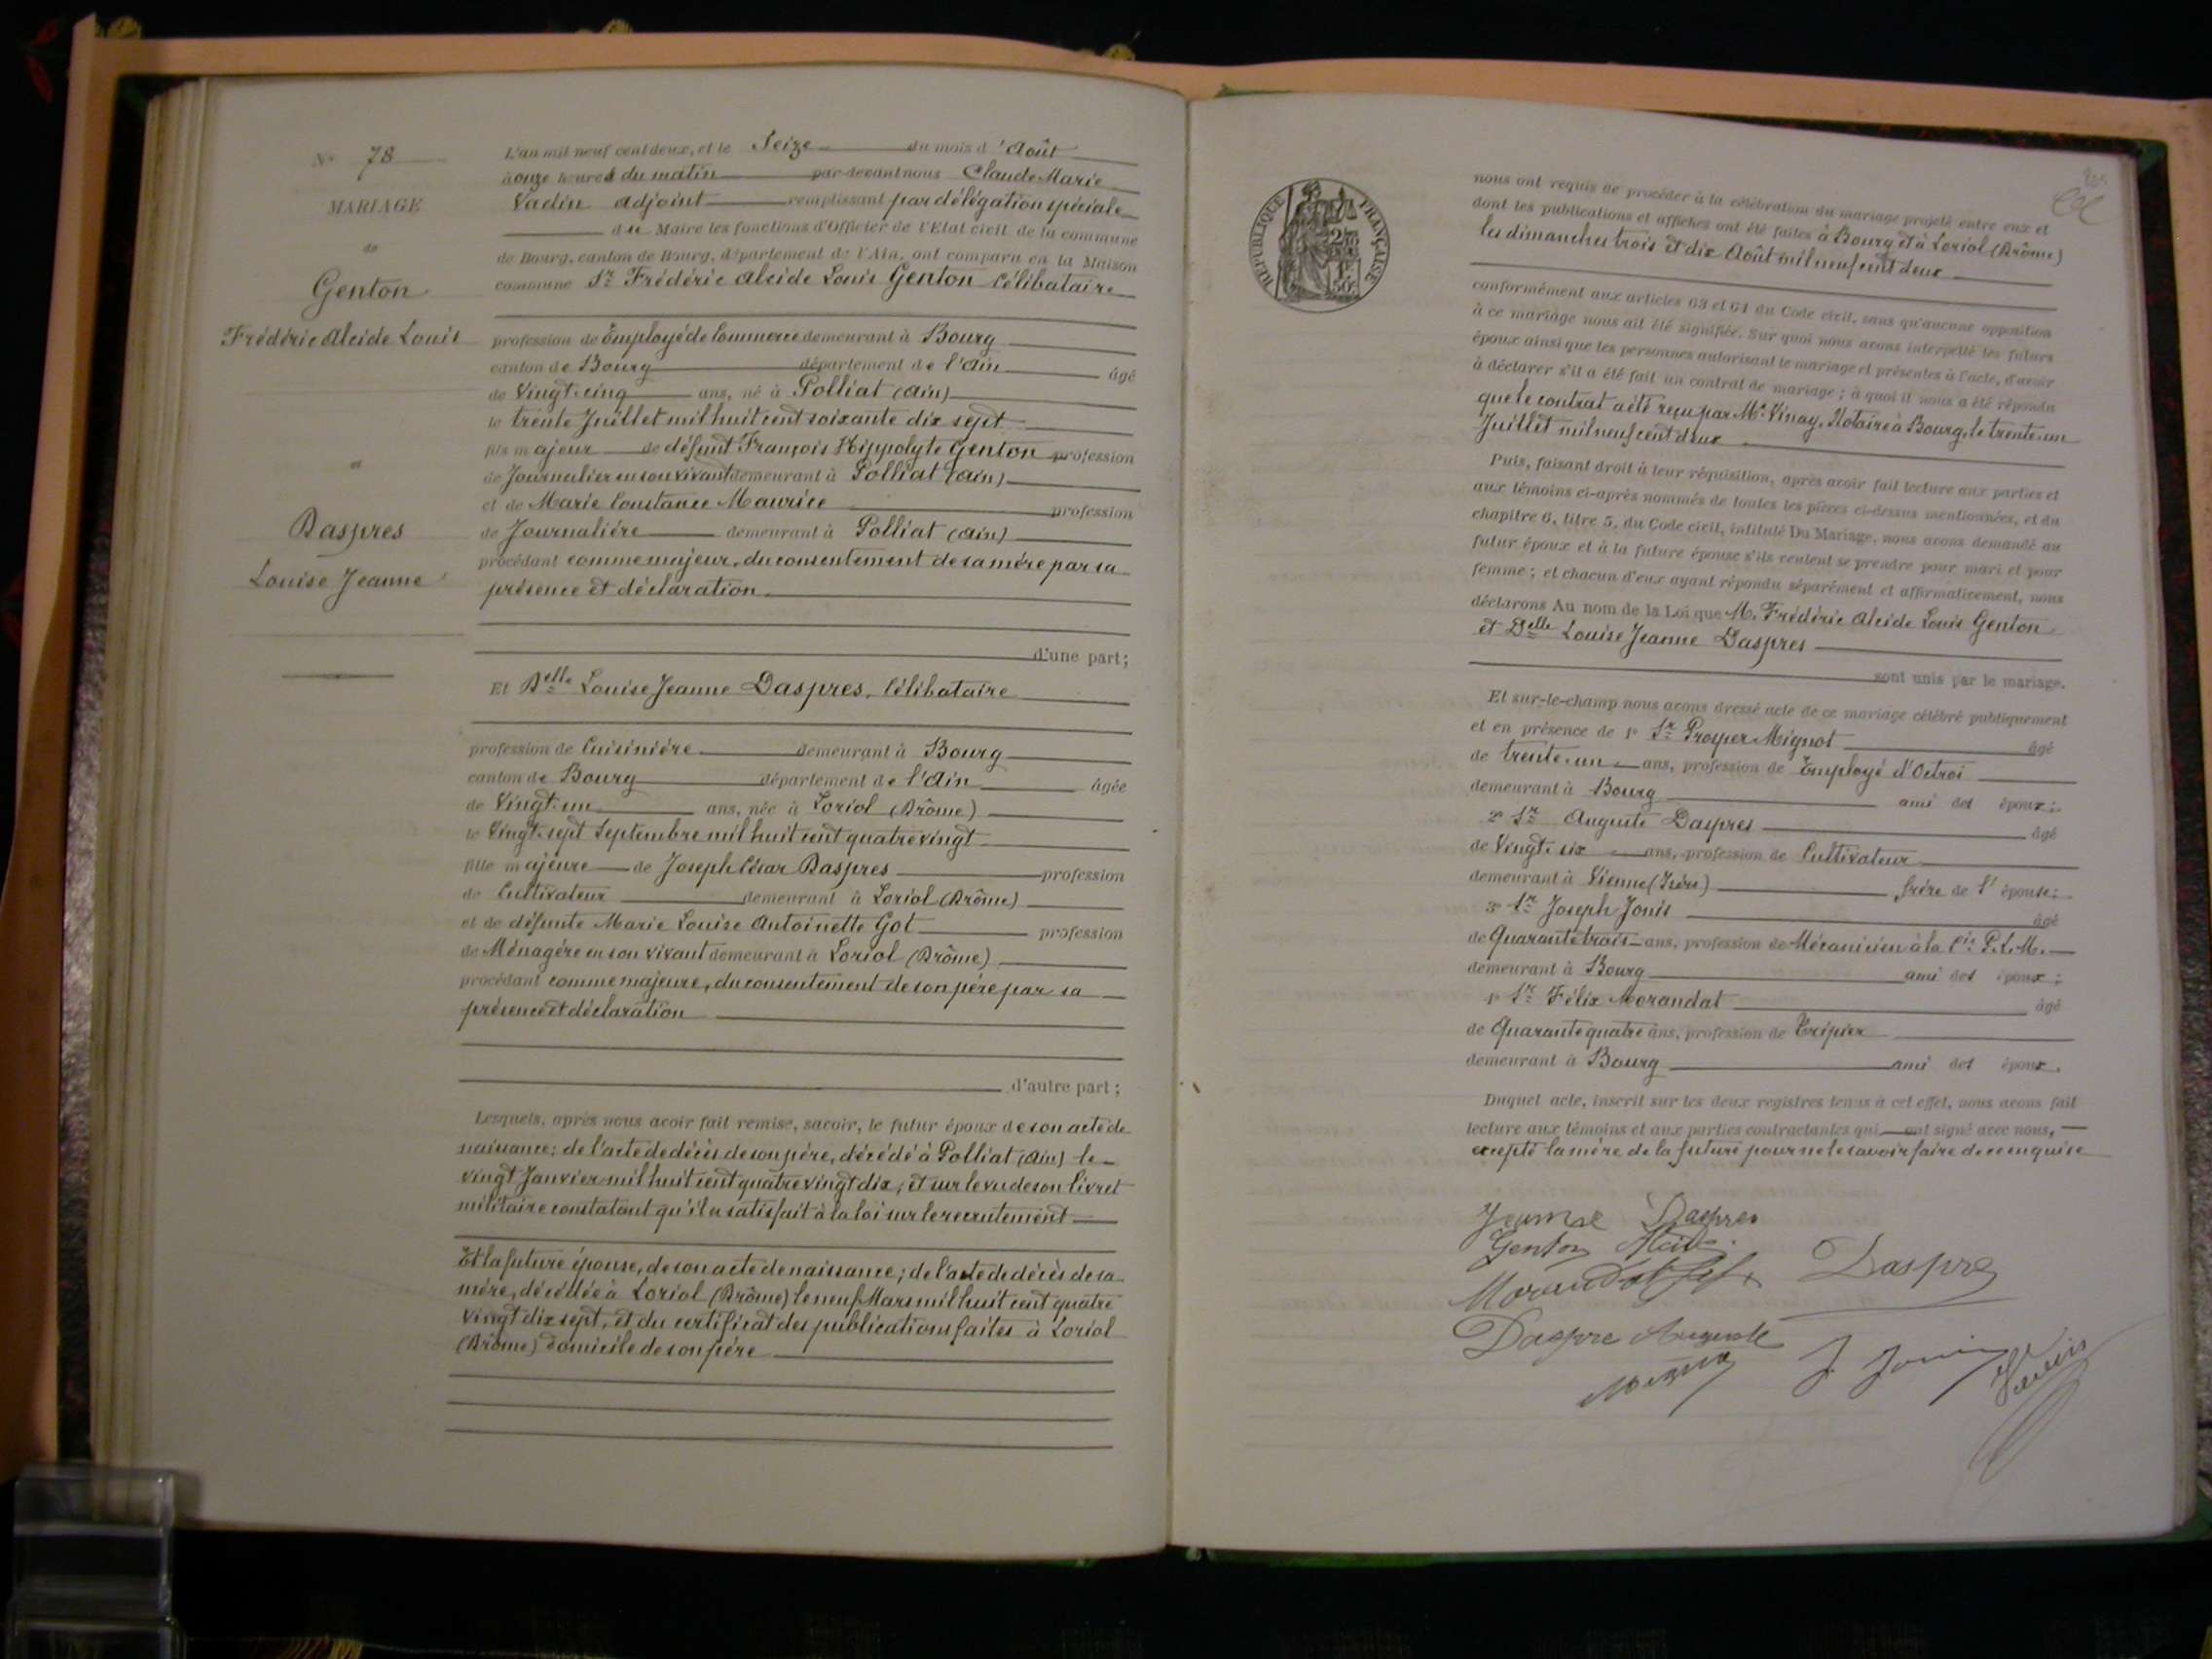 N° 78
MARIAGE
de
Genton
Frédéric Alcide Louis
et
Daspres
Louise Jeanne
L'an mil neuf cent deux, et le Seize du mois d'Août
à onze heures du matin par-devant nous Claude Marie
Vadin adjoint remplissant par délégation spéciale
du Maire les fonctions d'Officier de l'Etat civil de la commune
de Bourg, canton de Bourg, département de l'Ain, ont comparu en la Maison
commune Sr Frédéric Alcide Louis Genton Célibataire
profession de Employé de Commerce demeurant à Bourg
canton de Bourg département de l'Ain âgé
de Vingt-cinq ans, né à Polliat (Ain)
le trente Juillet mil huit cent soixante dix sept
fils majeur de défunt François Hippolyte Genton profession
de Journalier en son vivant demeurant à Polliat (Ain)
et de Marie Constance Maurice profession
de Journalière demeurant à Polliat (Ain)
procédant comme majeur, du consentement de sa mère par sa
présence et déclaration
d'une part;
Et Delle Louise Jeanne Daspres, Célibataire
profession de Cuisinière demeurant à Bourg
canton de Bourg département de l'Ain âgée
de Vingt-un ans, née à Loriol (Drôme)
le Vingt-sept Septembre mil huit cent quatre vingt
fille majeure de Joseph César Daspres profession
de Cultivateur demeurant à Loriol (Drôme)
et de défunte Marie Louise Antoinette Got profession
de Ménagère en son vivant demeurant à Loriol (Drôme)
procédant comme majeure, du consentement de son père par sa
présence et déclaration
d'autre part;
Lesquels, après nous avoir fait remise, savoir, le futur époux de son acte de
naissance; de l'acte de décès de son père, décédé à Polliat (Ain) le
vingt Janvier mil huit cent quatre vingt dix; et sur le vu de son livret
militaire constatant qu'il a satisfait à la loi sur le recrutement
Et la future épouse, de son acte de naissance; de l'acte de décès de sa
mère, décédée à Loriol (Drôme) le neuf Mars mil huit cent quatre
vingt dix sept, et du certificat des publications faites à Loriol
(Drôme) domicile de son père
RÉPUBLIQUE FRANÇAISE
nous ont requis de procéder à la célébration du mariage projeté entre eux et
dont les publications et affiches ont été faites à Bourg et à Loriol (Drôme)
les dimanches trois et dix Août mil neuf cent deux
conformément aux articles 63 et 64 du Code civil, sans qu'aucune opposition
à ce mariage nous ait été signifiée. Sur quoi nous avons interpellé les futurs
époux ainsi que les personnes autorisant le mariage et présentes à l'acte, d'avoir
à déclarer s'il a été fait un contrat de mariage; à quoi il nous a été répondu
que le contrat a été reçu par Me Vinay, Notaire à Bourg, le trente-un
Juillet mil neuf cent deux
Puis, faisant droit à leur réquisition, après avoir fait lecture aux parties et
aux témoins ci-après nommés de toutes les pièces ci-dessus mentionnées, et du
chapitre 6, titre 5, du Code civil, intitulé Du Mariage, nous avons demandé au
futur époux et à la future épouse s'ils veulent se prendre pour mari et pour
femme; et chacun d'eux ayant répondu séparément et affirmativement, nous
déclarons Au nom de la Loi que M. Frédéric Alcide Louis Genton
et Delle Louise Jeanne Daspres
sont unis par le mariage.
Et sur-le-champ nous avons dressé acte de ce mariage célébré publiquement
et en présence de 1° Sr Prosper Mignot âgé
de trente-un ans, profession de Employé d'Octroi
demeurant à Bourg ami des époux;
2° Sr Auguste Daspres âgé
de Vingt-six ans, profession de Cultivateur
demeurant à Vienne (Isère) frère de l'épouse;
3° Sr Joseph Jonis âgé
de Quarante trois ans, profession de Mécanicien à la Cie P.L.M.
demeurant à Bourg ami des époux;
4° Sr Félix Morandat âgé
de Quarante quatre ans, profession de Tripier
demeurant à Bourg ami des époux.
Duquel acte, inscrit sur les deux registres tenus à cet effet, nous avons fait
lecture aux témoins et aux parties contractantes qui ont signé avec nous,
excepté la mère de la future pour ne le savoir faire de ce enquise
Jeanne Daspres
Genton Alcide
Morandat Daspre
Daspre Auguste
J. Jonis